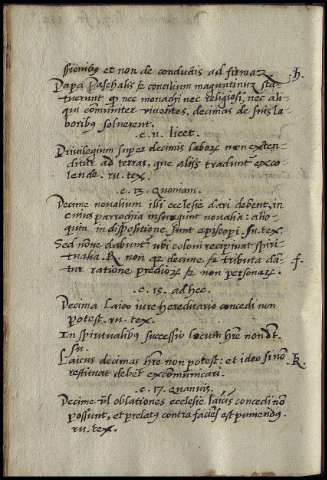 ssionibꝫ et non de conductis ad firmaꝫ h.
Papa Paschalis ⁊ concilium maguntinuꝫ sta
tuerunt ꝙ nec monachi nec religiosi, nec ali
qui communiter viventes, decimas de suis la
boribꝫ solverent.
c. 11. licet.
Privilegium super decimis laborꝫ non exten
ditur ad terras, quas aliis tradunt exco
lendas. ru. tex.
c. 13. Quoniam.
Decime novalium illi ecclesie dari debent, in
cuius parrochia insurgunt novalia: alio
quin in dispositione sunt episcopi. su. tex.
Sed non dabunt ubi coloni recipiunt spiri
tualia. R. non qꝫ decime ⁊ tributa dā
tur ratione predioꝝ ⁊ non personaꝝ. f.
c. 15. ad hec.
Decima laico iure hereditario concedi non
potest. ru. tex.
In spiritualibꝫ successio locum hr̄e non pōt.
su.
Laicus decimas hr̄e non potest: et ideo si nō R.
restituat debet excommunicari.
c. 17. Quamvis.
Decime vl̄ oblationes ecclesie laicis concedi nō
possunt, et prelatꝫ contra faciēs est puniendus.
ru. tex.